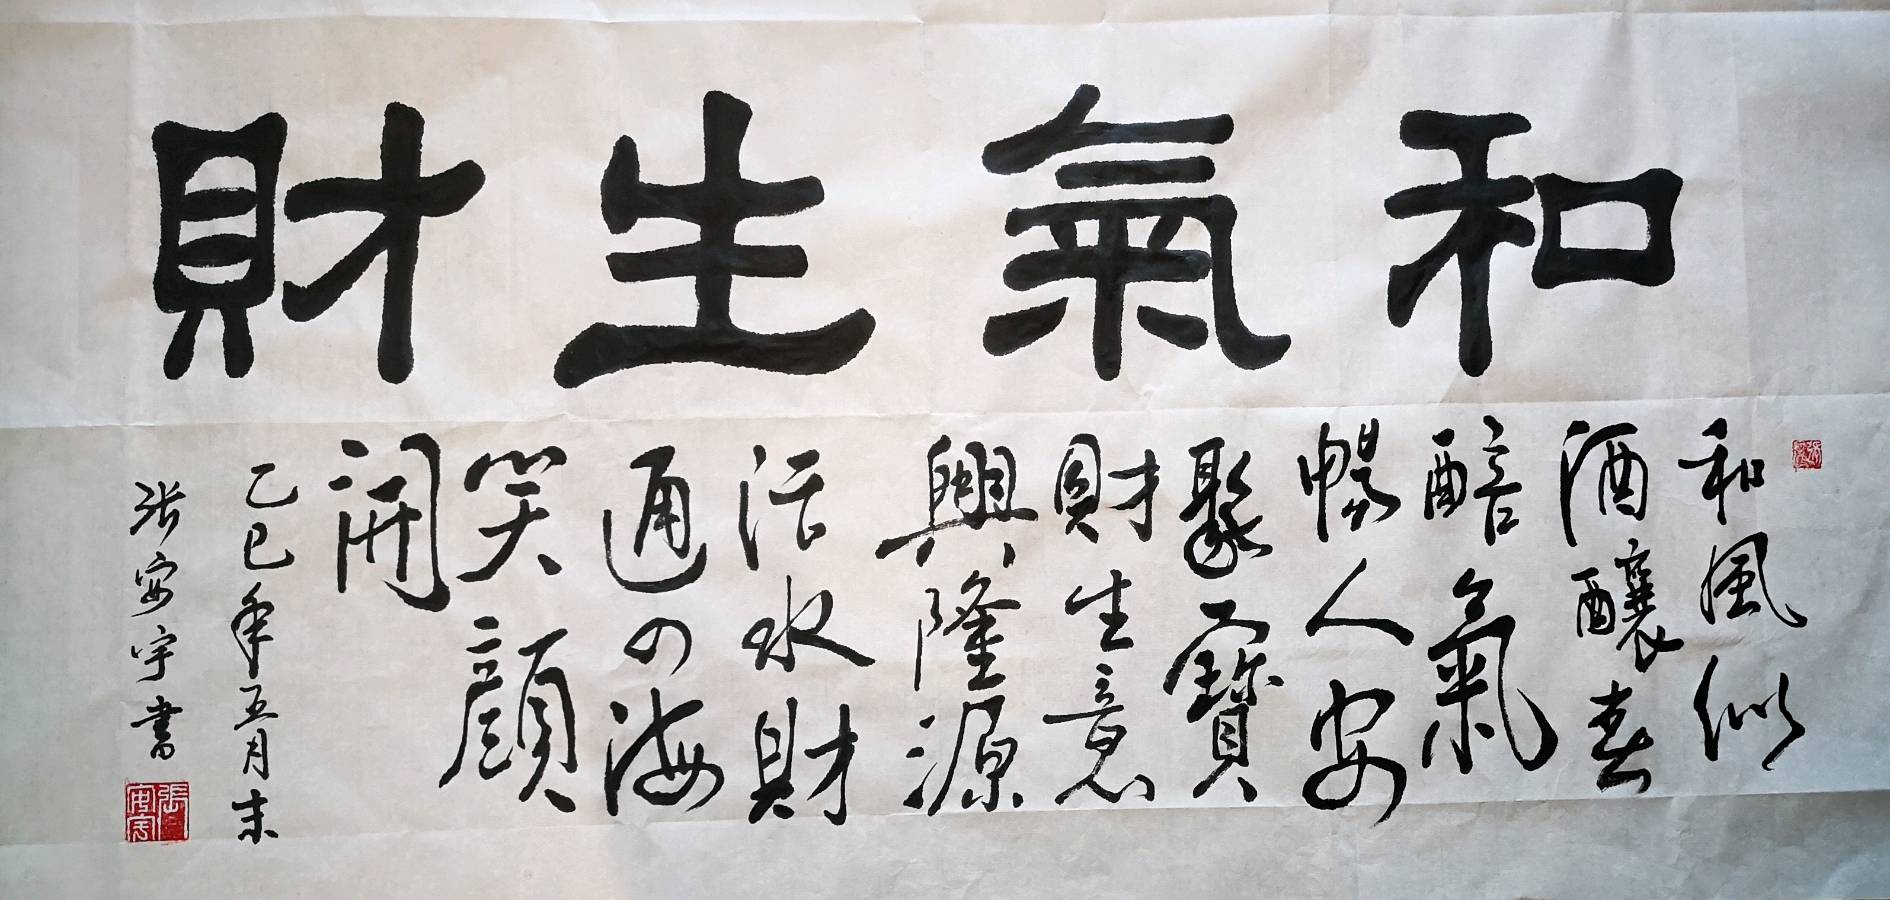 和氣生財
和風似
酒釀春
醅氣
暢人安
聚寶
財生意
興隆源
活水財
通四海
笑顏
開
乙巳年五月末
张安宇書